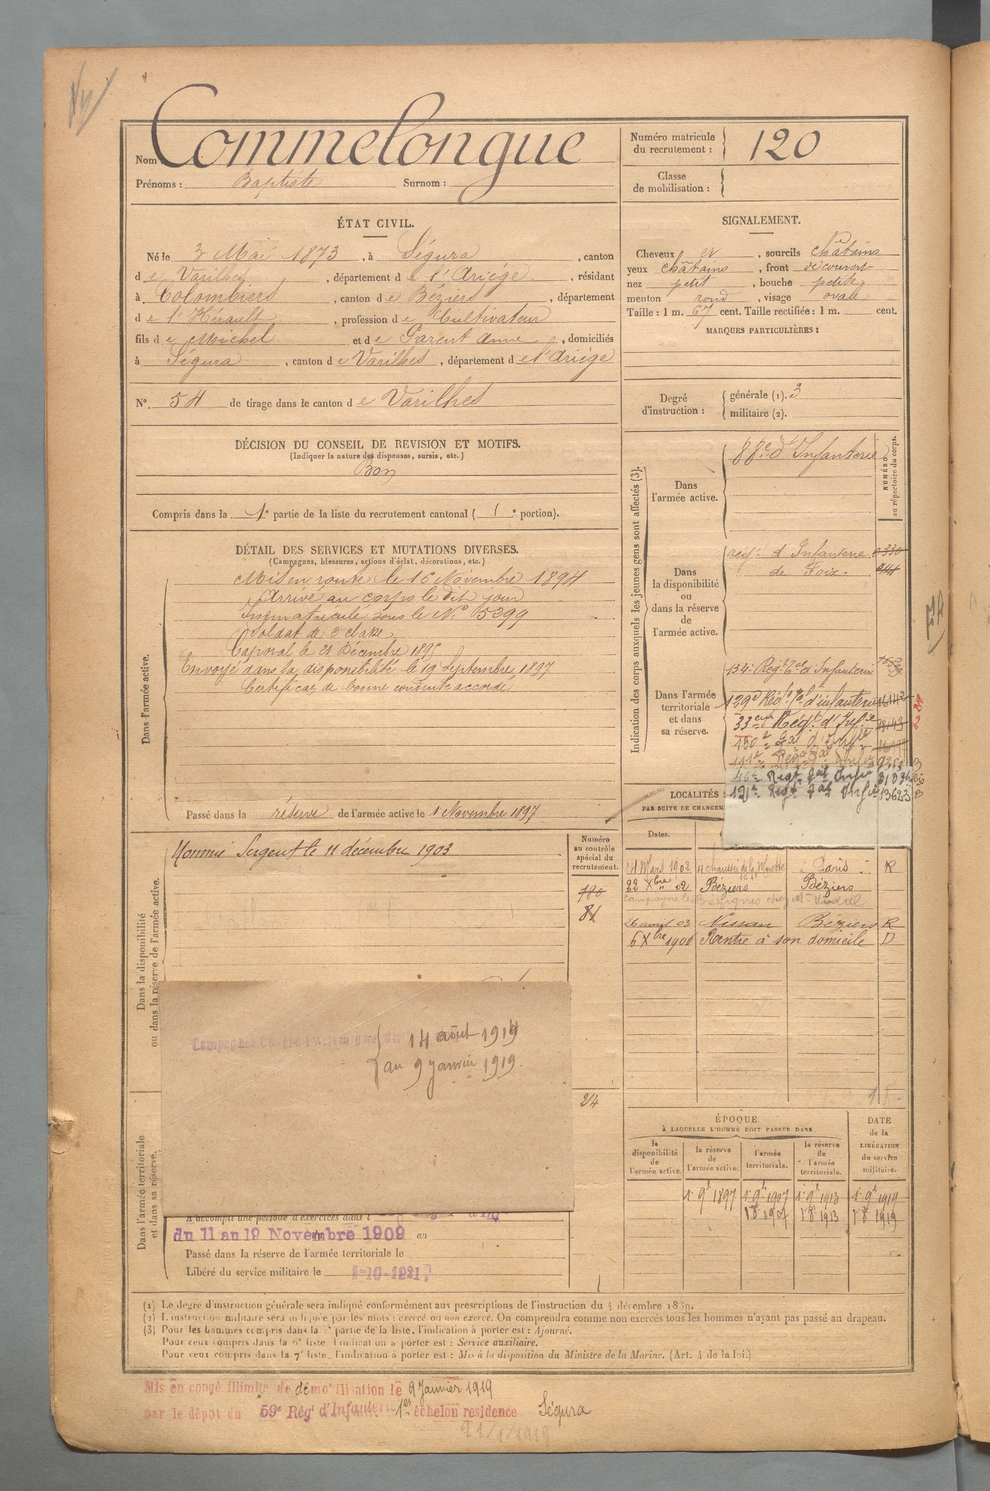 Nom Commelongue
Prénoms : Baptiste Surnom :
Numéro matricule du recrutement : 120
Classe de mobilisation :
ÉTAT CIVIL.
Né le 3 Mai 1873, à Ségura, canton
de Varilhes, département de l'Ariège, résidant
à Colombiers, canton de Béziers, département
de l'Hérault, profession de Cultivateur
fils de Michel et de Parent Anne, domiciliés
à Ségura, canton de Varilhes, département de l'Ariège
N° 54 de tirage dans le canton de Varilhes
SIGNALEMENT.
Cheveux et, sourcils châtains
yeux châtains, front découvert
nez petit, bouche petite
menton rond, visage ovale
Taille : 1 m. 67 cent. Taille rectifiée : 1 m. cent.
MARQUES PARTICULIÈRES :
Degré d'instruction : générale (1). 3
militaire (2).
DÉCISION DU CONSEIL DE REVISION ET MOTIFS.
(Indiquer la nature des dispenses, sursis, etc.)
Bon
Compris dans la 1e partie de la liste du recrutement cantonal ( 1e portion).
DÉTAIL DES SERVICES ET MUTATIONS DIVERSES.
(Campagnes, blessures, actions d'éclat, décorations, etc.)
Dans l'armée active.
Mis en route le 16 Novembre 1894
Arrivé au corps le dit jour
Immatriculé sous le N° 5299
Soldat de 2e classe
Caporal le 21 Décembre 1895
Envoyé dans la disponibilité le 19 Septembre 1897
Certificat de bonne conduite accordé
Passé dans la réserve de l'armée active le 1 Novembre 1897
Indication des corps auxquels les jeunes gens sont affectés (3).
NUMÉRO au répertoire du corps.
Dans l'armée active.
88e d'Infanterie
Dans la disponibilité ou dans la réserve de l'armée active.
régt d'Infanterie
de Foix.
Dans l'armée territoriale et dans sa réserve.
134e Régt Tal d'Infanterie
129e Rég. Tal d'infanterie
33eme Régt d'Inf.ie
46e Régt Tal Infie
121e Régt Tal Infie 13623
LOCALITÉS
PAR SUITE DE CHANGEM
Dates.
14 Mars 1902 4 chaussée de la Muette Paris R
22 Xbre 02 Béziers Béziers
26 avril 03 Nissan Béziers R
6 Xbre 1906 Rentré à son domicile D
Dans la disponibilité ou dans la réserve de l'armée active.
Nommé Sergent le 11 décembre 1903
Numéro au contrôle spécial du recrutement.
780
81
24
14 août 1914
au 9 janvier 1919.
Dans l'armée territoriale et dans sa réserve.
A accompli une période d'exercices dans l
du 11 au 19 Novembre 1909 au
Passé dans la réserve de l'armée territoriale le
Libéré du service militaire le 1-10-1921
ÉPOQUE
A LAQUELLE L'HOMME DOIT PASSER DANS
la disponibilité de l'armée active.
la réserve de l'armée active.
l'armée territoriale.
la réserve de l'armée territoriale.
DATE de la LIBÉRATION du service militaire.
1er 9e 1897 1er 9e 1907 1er 9e 1913 1er 9e 1919
1 8 1907 1 8 1913 1 8 1919
(1) Le degré d'instruction générale sera indiqué conformément aux prescriptions de l'instruction du 4 décembre 1889.
(2) L'instruction militaire sera indiquée par les mots : exercé ou non exercé. On comprendra comme non exercés tous les hommes n'ayant pas passé au drapeau.
(3) Pour les hommes compris dans la 5e partie de la liste, l'indication à porter est : Ajourné.
Pour ceux compris dans la 6e liste, l'indication à porter est : Service auxiliaire.
Pour ceux compris dans la 7e liste, l'indication à porter est : Mis à la disposition du Ministre de la Marine. (Art. 4 de la loi.)
Mis en congé illimité de démobilisation le 9 Janvier 1919
par le dépôt du 59e Rég d'Infanterie 1er échelon residence Ségura